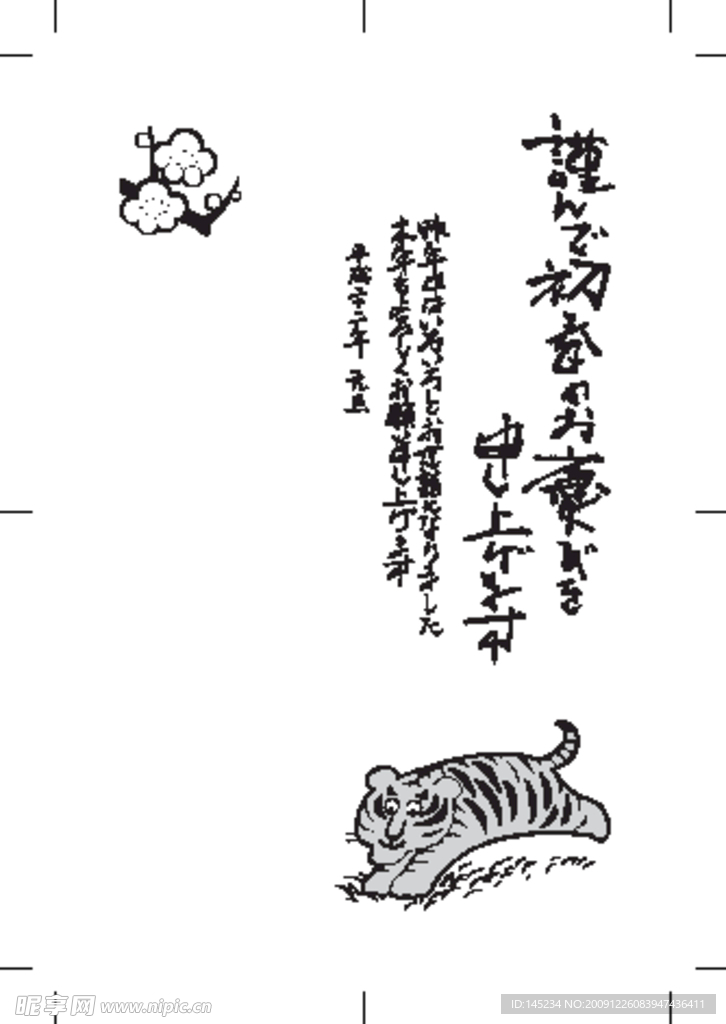 謹んで初春のお慶びを
申し上げます
昨年中はいろいろとお世話になりました
本年も宜しくお願い申し上げます
平成二十二年 元旦
昵享网 www.nipic.cn
ID:145234 NO:20091226083947436411